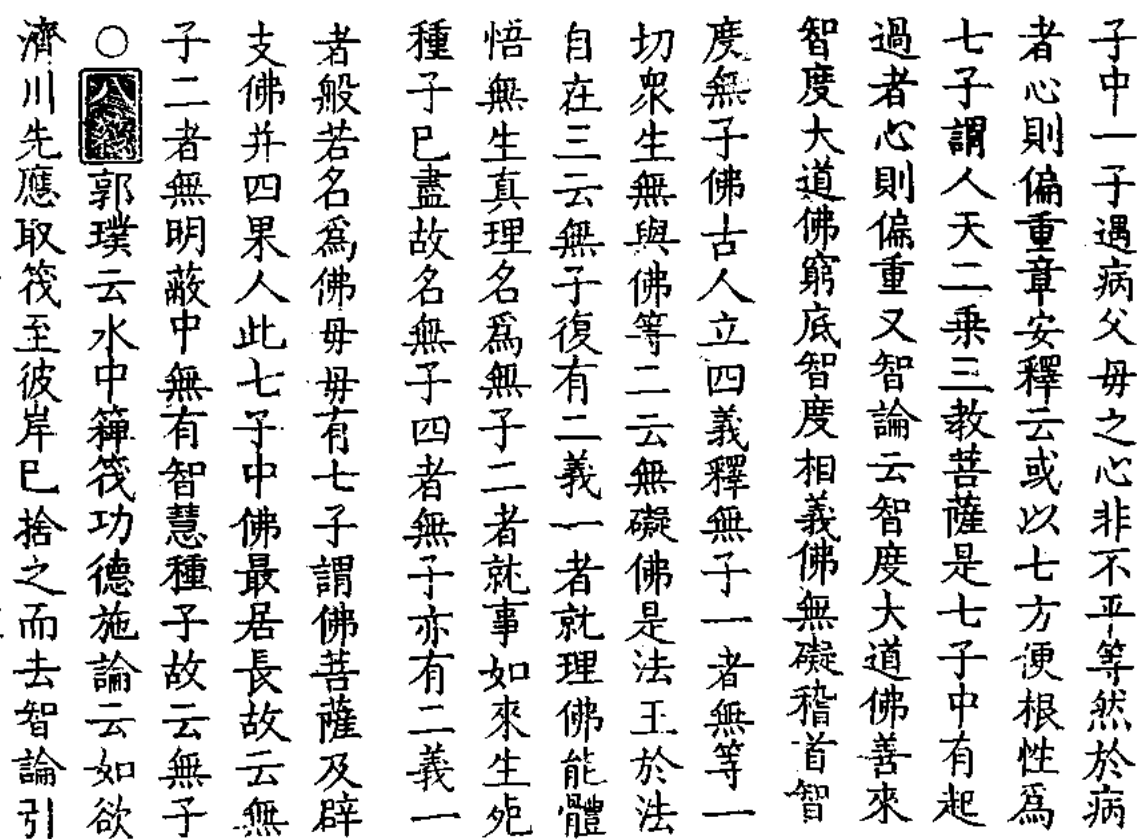 子中一子遇病父毋之心非不平等然於病
者心則偏重章安釋云或以七方便根性爲
七子謂人天二乗三教菩薩是七子中有起
過者心則偏重又智論云智度大道佛善來
智度大道佛窮底智度相義佛無礙稽首智
度無子佛古人立四義釋無子一者無等一
切衆生無與佛等二云無礙佛是法王於法
自在三云無子復有二義一者就理佛能體
悟無生真理名爲無子二者就事如來生死
種子巳盡故名無子四者無子亦有二義一
者般若名爲佛毋毋有七子謂佛菩薩及辟
支佛并四果人此七子中佛最居長故云無
子二者無明蔽中無有智慧種子故云無子
○郭璞云水中簰筏功德施論云如欲
濟川先應取筏至彼岸巳捨之而去智論引